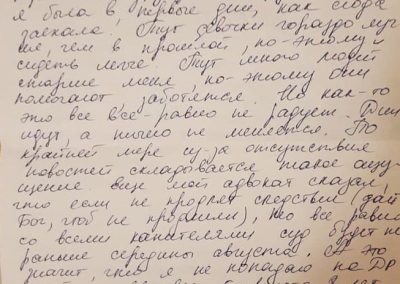 я была в первые дни, как сюда
заехала. Тут девочки гораздо луч-
ше, чем в прошлой, по-этому и
сидеть легче. Тут много людей
старше меня, по-этому они
помогают, заботятся. Но как-то
это все все-равно не радует. Дни
идут, а ничего не меняется. По
крайней мере из-за отсутствия
новостей складывается такое ощу-
щение. Еще мой адвокат сказал,
что если не продлят следствие (дай
Бог, чтоб не продлили), то все равно
со всеми капателями суд будет не
раньше середины августа. А это
значит, что я не попадаю на ДР